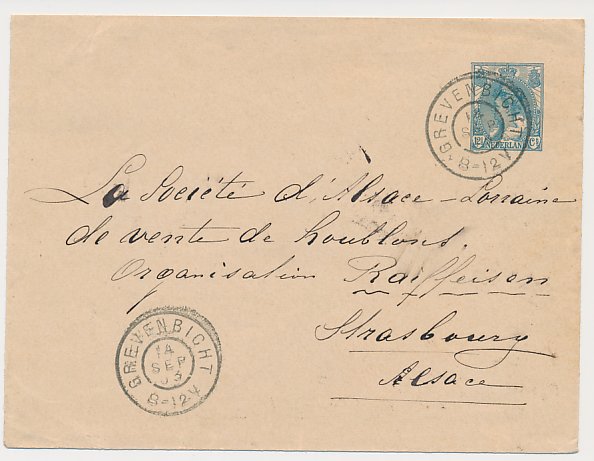 GREVENBICHT
14
SEP
8-12V
12½ NEDERLAND Ct
La Société d'Alsace-Lorraine
de vente de houblons.
Organisation Raiffeisen
Strasbourg
Alsace
GREVENBICHT
14
SEP
03
8-12V